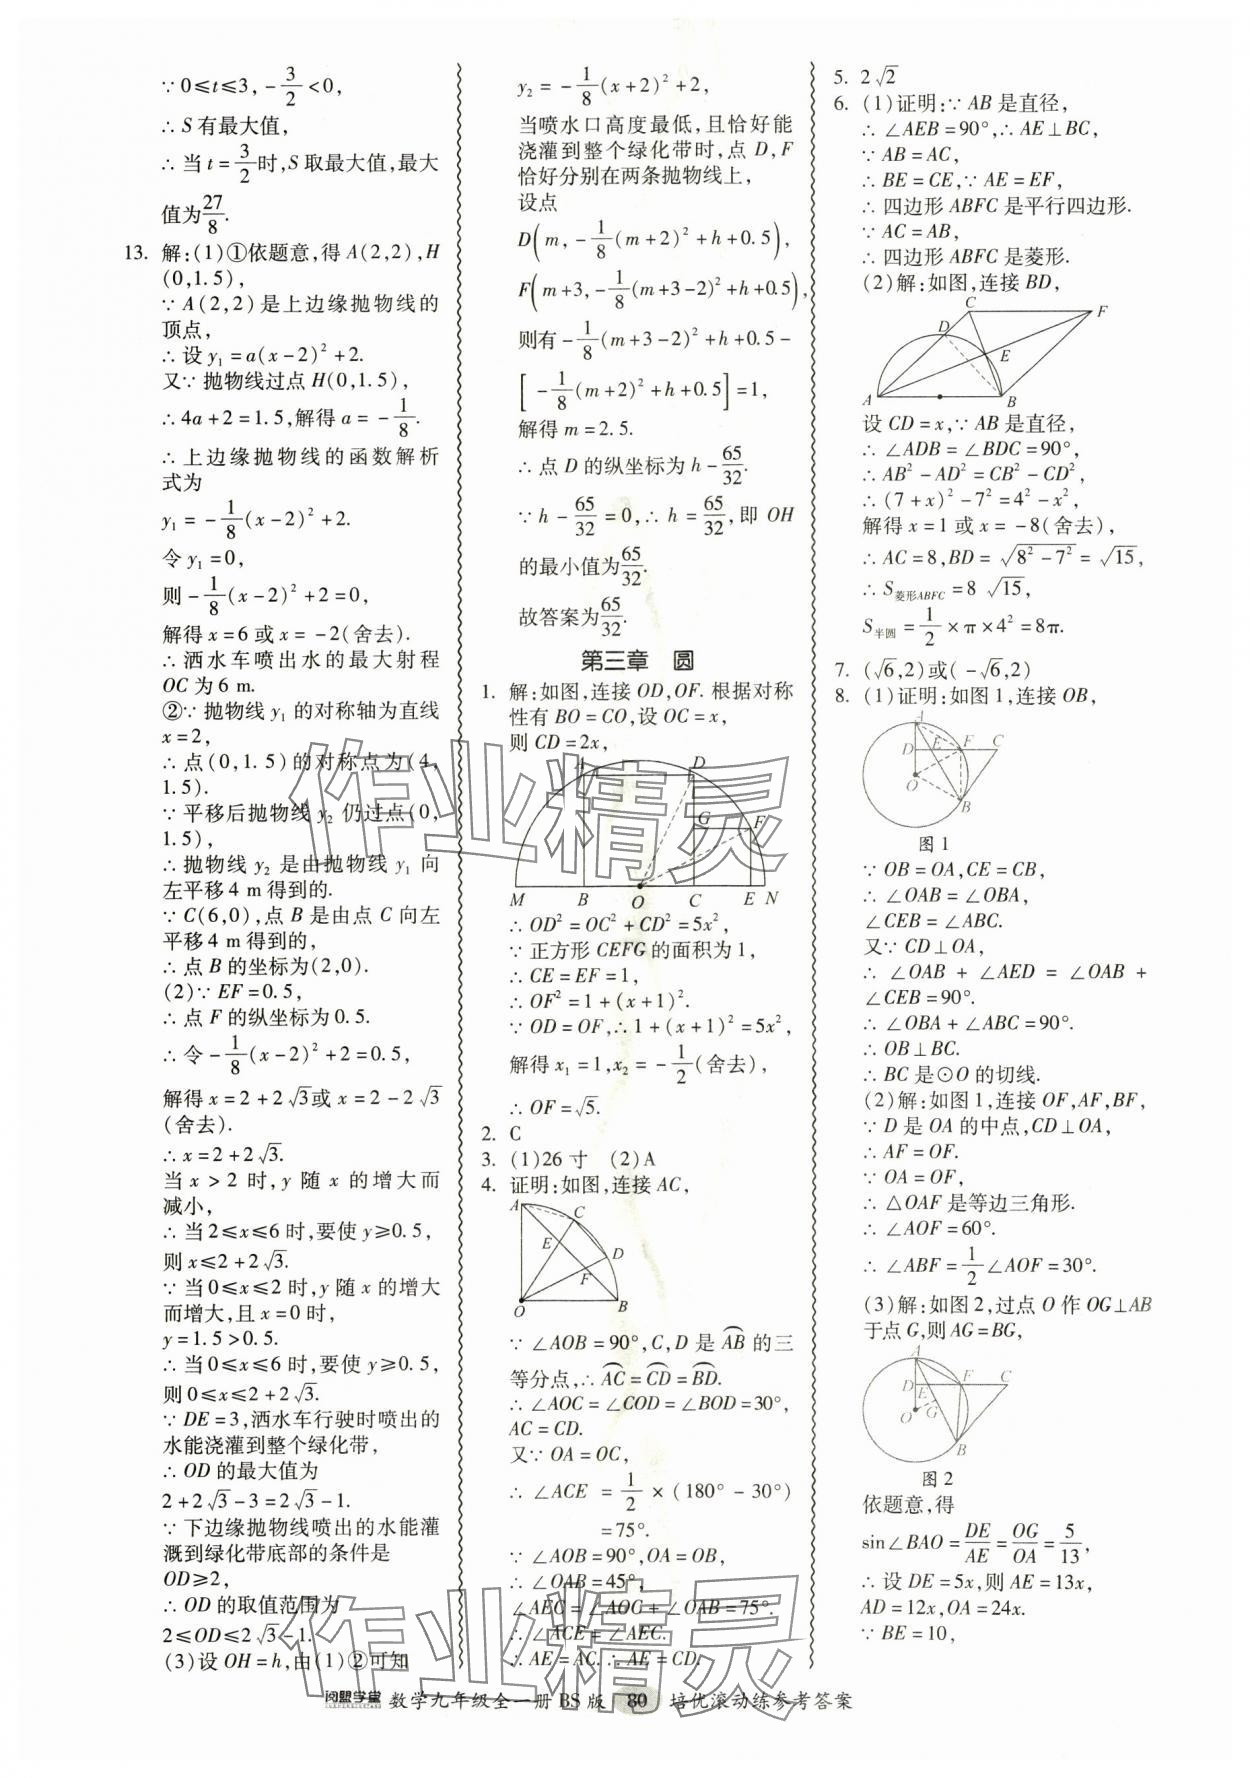 ∵0≤t≤3,-3/2<0,
∴S有最大值,
∴当t=3/2时,S取最大值,最大
值为27/8.
13. 解:(1)①依题意,得A(2,2),H
(0,1.5),
∵A(2,2)是上边缘抛物线的
顶点,
∴设y₁=a(x-2)²+2.
又∵抛物线过点H(0,1.5),
∴4a+2=1.5,解得a=-1/8.
∴上边缘抛物线的函数解析
式为
y₁=-1/8(x-2)²+2.
令y₁=0,
则-1/8(x-2)²+2=0,
解得x=6或x=-2(舍去).
∴洒水车喷出水的最大射程
OC为6 m.
②∵抛物线y₁的对称轴为直线
x=2,
∴点(0,1.5)的对称点为(4,
1.5).
∵平移后抛物线y₂仍过点(0,
1.5),
∴抛物线y₂是由抛物线y₁向
左平移4 m得到的.
∵C(6,0),点B是由点C向左
平移4 m得到的,
∴点B的坐标为(2,0).
(2)∵EF=0.5,
∴点F的纵坐标为0.5.
∴令-1/8(x-2)²+2=0.5,
解得x=2+2√3或x=2-2√3
(舍去).
∴x=2+2√3.
当x>2时,y随x的增大而
减小,
∴当2≤x≤6时,要使y≥0.5,
则x≤2+2√3.
∵当0≤x≤2时,y随x的增大
而增大,且x=0时,
y=1.5>0.5.
∴当0≤x≤6时,要使y≥0.5,
则0≤x≤2+2√3.
∵DE=3,洒水车行驶时喷出的
水能浇灌到整个绿化带,
∴OD的最大值为
2+2√3-3=2√3-1.
∵下边缘抛物线喷出的水能灌
溉到绿化带底部的条件是
OD≥2,
∴OD的取值范围为
2≤OD≤2√3-1.
(3)设OH=h,由(1)②可知
y₂=-1/8(x+2)²+2,
当喷水口高度最低,且恰好能
浇灌到整个绿化带时,点D,F
恰好分别在两条抛物线上,
设点
D(m,-1/8(m+2)²+h+0.5),
F(m+3,-1/8(m+3-2)²+h+0.5),
则有-1/8(m+3-2)²+h+0.5-
[-1/8(m+2)²+h+0.5]=1,
解得m=2.5.
∴点D的纵坐标为h-65/32.
∵h-65/32=0,∴h=65/32,即OH
的最小值为65/32.
故答案为65/32.
第三章 圆
1. 解:如图,连接OD,OF.根据对称
性有BO=CO,设OC=x,
则CD=2x,
A D
G F
M B O C E N
∴OD²=OC²+CD²=5x²,
∵正方形CEFG的面积为1,
∴CE=EF=1,
∴OF²=1+(x+1)².
∵OD=OF,∴1+(x+1)²=5x²,
解得x₁=1,x₂=-1/2(舍去),
∴OF=√5.
2. C
3. (1)26寸 (2)A
4. 证明:如图,连接AC,
A C
E D
F
O B
∵∠AOB=90°,C,D是⌒AB的三
等分点,∴⌒AC=⌒CD=⌒BD.
∴∠AOC=∠COD=∠BOD=30°,
AC=CD.
又∵OA=OC,
∴∠ACE=1/2×(180°-30°)
=75°.
∵∠AOB=90°,OA=OB,
∴∠OAB=45°,
∠AEC=∠AOC+∠OAB=75°.
∴∠ACE=∠AEC.
∴AE=AC.∴AE=CD.
5. 2√2
6. (1)证明:∵AB是直径,
∴∠AEB=90°,∴AE⊥BC,
∵AB=AC,
∴BE=CE,∵AE=EF,
∴四边形ABFC是平行四边形.
∵AC=AB,
∴四边形ABFC是菱形.
(2)解:如图,连接BD,
C F
D
E
A B
设CD=x,∵AB是直径,
∴∠ADB=∠BDC=90°,
∴AB²-AD²=CB²-CD²,
∴(7+x)²-7²=4²-x²,
解得x=1或x=-8(舍去),
∴AC=8,BD=√(8²-7²)=√15,
∴S菱形ABFC=8√15,
S半圆=1/2×π×4²=8π.
7. (√6,2)或(-√6,2)
8. (1)证明:如图1,连接OB,
A
D E F C
O
B
图1
∵OB=OA,CE=CB,
∴∠OAB=∠OBA,
∠CEB=∠ABC.
又∵CD⊥OA,
∴∠OAB+∠AED=∠OAB+
∠CEB=90°.
∴∠OBA+∠ABC=90°.
∴OB⊥BC.
∴BC是⊙O的切线.
(2)解:如图1,连接OF,AF,BF,
∵D是OA的中点,CD⊥OA,
∴AF=OF.
∵OA=OF,
∴△OAF是等边三角形.
∴∠AOF=60°.
∴∠ABF=1/2∠AOF=30°.
(3)解:如图2,过点O作OG⊥AB
于点G,则AG=BG,
A
D F C
E
O G
B
图2
依题意,得
sin∠BAO=DE/AE=OG/OA=5/13,
∴设DE=5x,则AE=13x,
AD=12x,OA=24x.
∵BE=10,
阅盟学堂 数学九年级全一册 BS版 80 培优滚动练参考答案
作业精灵
作业精灵